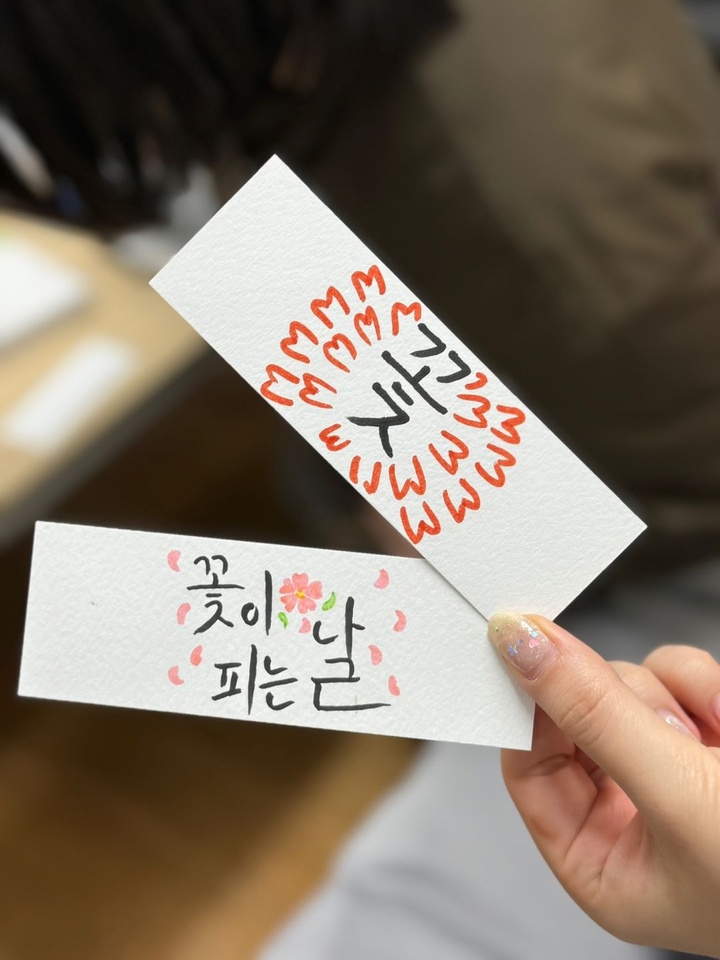 꽃
꽃이
피는 날